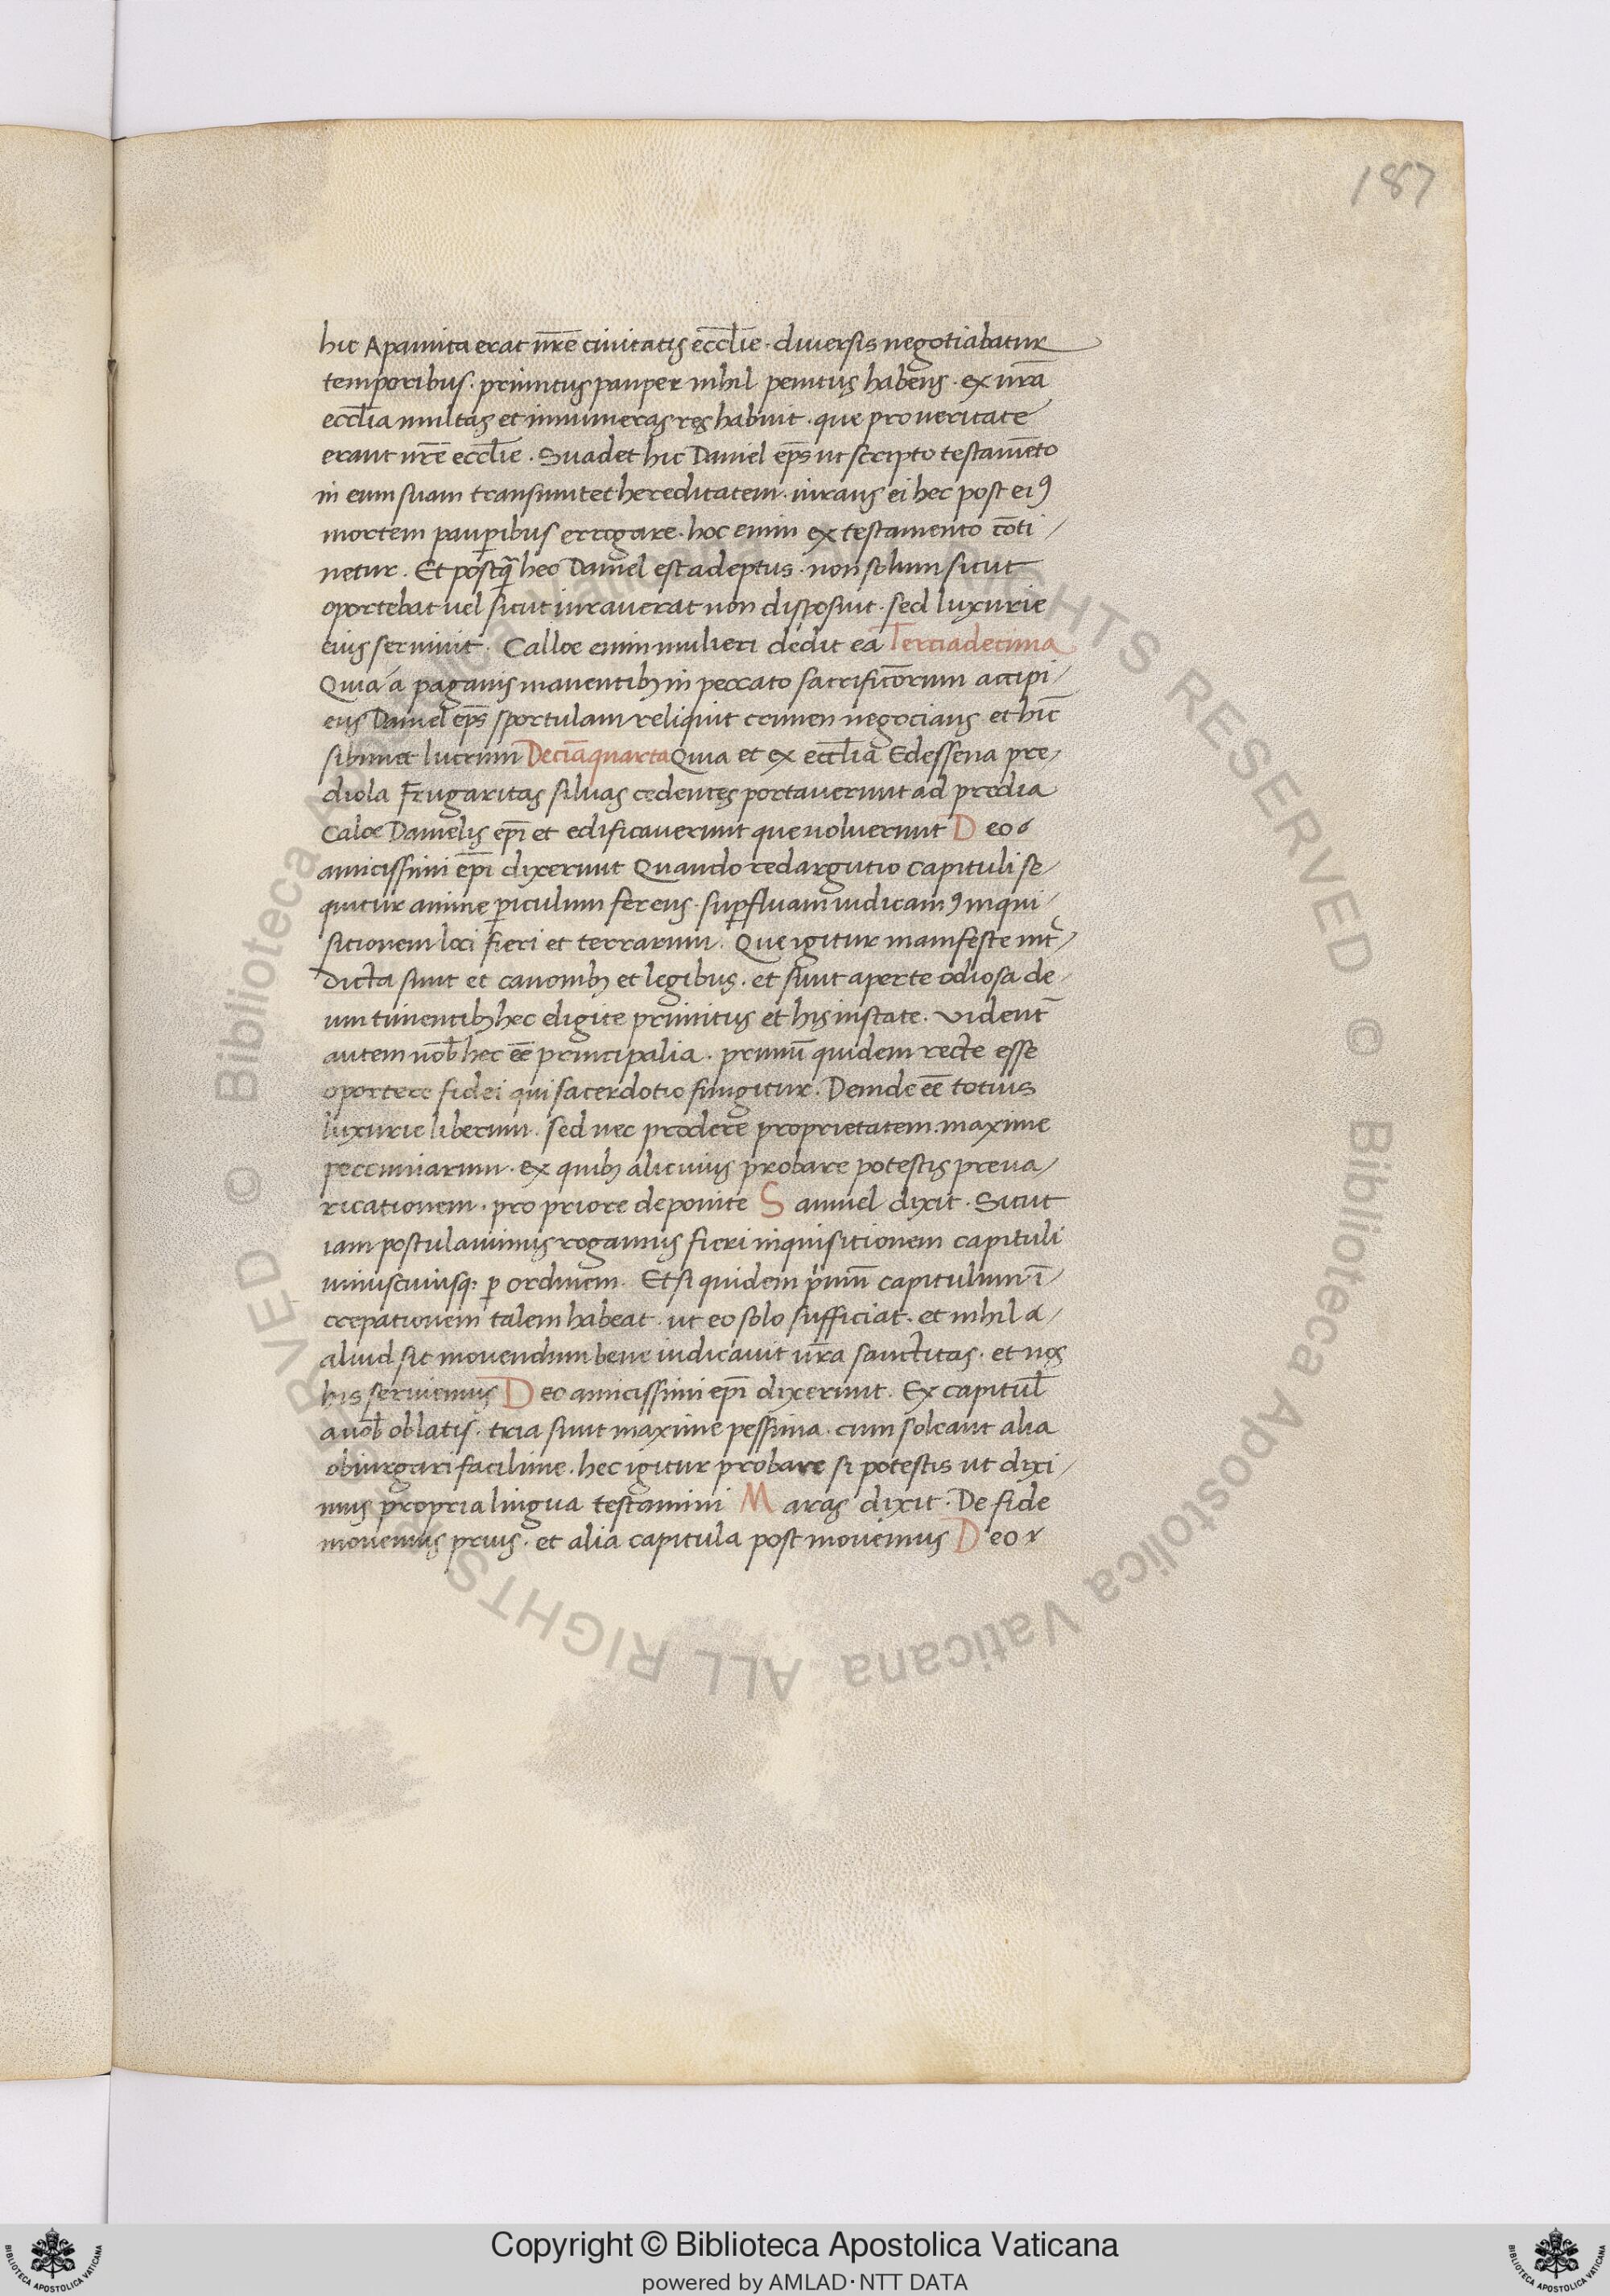 187
hic Apamita erat nr̄e ciuitatis eccl̄ie · diuersis negotiabatur
temporibus · primitus pauper nihil penitus habens · ex nr̄a
eccl̄ia multas et innumeras res habuit · que pro ueritate
erant nr̄e eccl̄ie · Suadet hic Daniel ep̄s ut scripto testamēto
in eum suam transmitet hereditatem · iurans ei hec post eiꝰ
mortem paup̲ibus errogare · hoc enim ex testamento cōti/
netur · Et postq̄ heo Daniel est adeptus · non solum sicut
oportebat uel sicut iurauerat non disposuit · sed luxurie
eius seruiuit · Calloe enim mulieri dedit ea Terciadecima
Quia a paganis manentibꝫ in peccato sacrificiorum accipi/
ens Daniel ep̄s sportulam reliquit crimen negocians et hīc
sibimet lucrum Decīaquarta Quia et ex eccl̄ia Edessena pre/
diola Frugaritas siluas cedentes portauerunt ad predia
Caloe Danielis ep̄i et edificauerunt que uoluerunt D eo
amicissimi ep̄i dixerunt Quando redargutio capituli se/
quitur anime p̲iculum ferens · sup̲fluam iudicamꝰ inqui/
sitionem loci fieri et terrarum · Que igitur manifeste int̄/
dicta sunt et canonibꝫ et legibus · et sunt aperte odiosa de/
um timentibꝫ hec eligite primitus et his instate · vident̄
autem nob̄ hec ee̅ principalia · primū quidem recte esse
oportere fidei qui sacerdotio fungitur · Deinde ee̅ totius
luxurie liberum · sed nec prodere proprietatem · maxime
peccuniarum · ex quibꝫ alicuius probare potestis preua/
ricationem · pro priore deponite S amuel dixit · Sicut
iam postulauimus rogamus fieri inquisitionem capituli
uniuscuiusqꝫ p̲ ordinem · Et si quidem primū capitulum ī/
crepationem talem habeat · ut eo solo sufficiat · et nihil a/
aliud sit mouendum bene iudicauit ur̄a sanctitas · et nos
his seruiemus D eo amicissimi ep̄i dixerunt · Ex capitul̄
a uob̄ oblatis · tria sunt maxime pessima · cum soleant alia
obiurgari facilime · hec igitur probare si potestis ut dixi/
mus propria lingua testamini M aras dixit · De fide
mouemus prius · et alia capitula post mouemus D eo
© Biblioteca Apostolica Vaticana ALL RIGHTS RESERVED © Biblioteca Apostolica Vaticana ALL RIGHTS RESERVED
Copyright © Biblioteca Apostolica Vaticana
powered by AMLAD·NTT DATA
BIBLIOTECA APOSTOLICA VATICANA
BIBLIOTECA APOSTOLICA VATICANA